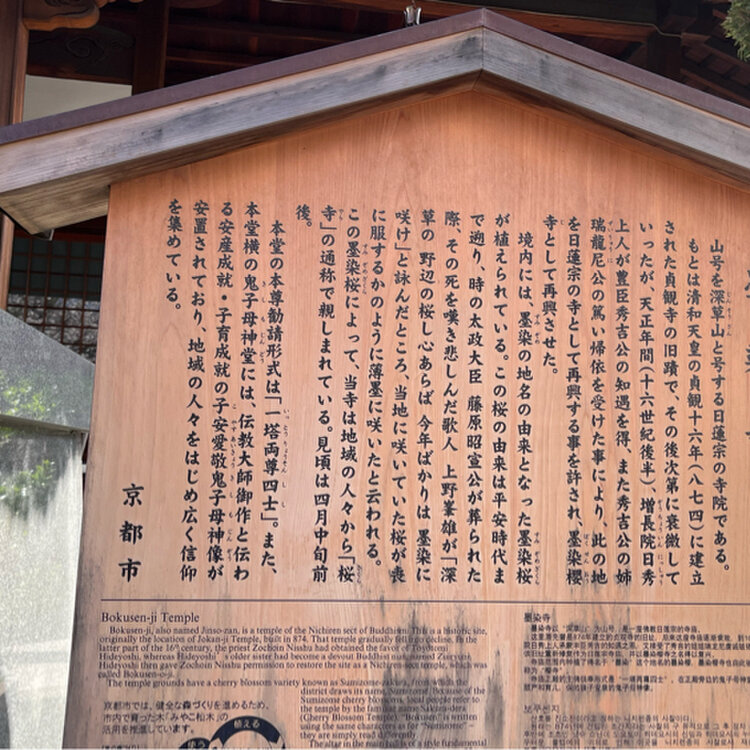 山号を深草山と号する日蓮宗の寺院である。
もとは清和天皇の貞観十六年（八七四）に建立
された貞観寺の旧蹟で、その後次第に衰微して
いったが、天正年間（十六世紀後半）、増長院日秀
上人が豊臣秀吉公の知遇を得、また秀吉公の姉
瑞龍尼公の篤い帰依を受けた事により、此の地
を日蓮宗の寺として再興する事を許され、墨染櫻
寺として再興させた。
境内には、墨染の地名の由来となった墨染桜
が植えられている。この桜の由来は平安時代ま
で遡り、時の太政大臣 藤原昭宣公が葬られた
際、その死を嘆き悲しんだ歌人 上野峯雄が「深
草の 野辺の桜し心あらば 今年ばかりは 墨染に
咲け」と詠んだところ、当地に咲いていた桜が喪
に服するかのように薄墨に咲いたと云われる。
この墨染桜によって、当寺は地域の人々から「桜
寺」の通称で親しまれている。見頃は四月中旬前
後。
本堂の本尊勧請形式は「一塔両尊四士」。また、
本堂横の鬼子母神堂には、伝教大師御作と伝わ
る安産成就・子育成就の子安愛敬鬼子母神像が
安置されており、地域の人々をはじめ広く信仰
を集めている。
京都市
Bokusen-ji Temple
Bokusen-ji, also named Jinso-zan, is a temple of the Nichiren sect of Buddhism. This is a historic site,
originally the location of Jokan-ji Temple, built in 874. That temple gradually fell into decline. In the
latter part of the 16th century, the priest Zochoin Nisshu had obtained the favor of Toyotomi
Hideyoshi, whereas Hideyoshi's older sister had become a devout Buddhist nun, named Zuiryuni.
Hideyoshi then gave Zochoin Nisshu permission to restore the site as a Nichiren-sect temple, which was
called Bokusen-o-ji.
The temple grounds have a cherry blossom variety known as Sumizome-zakura, from which the
district draws its name, Sumizome. Because of the
Sumizome cherry blossoms, local people refer to
the temple by the familiar name Sakura-dera
(Cherry Blossom Temple). "Bokusen" is written
using the same characters as for "Sumizome" –
they are simply read differently.
The altar in the main hall is of a style fundamental
京都市では、健全な森づくりを進めるため、
市内で育った木「みやこ杣木」の
活用を推進しています。
植える
使う
墨染寺
묘쿠센지